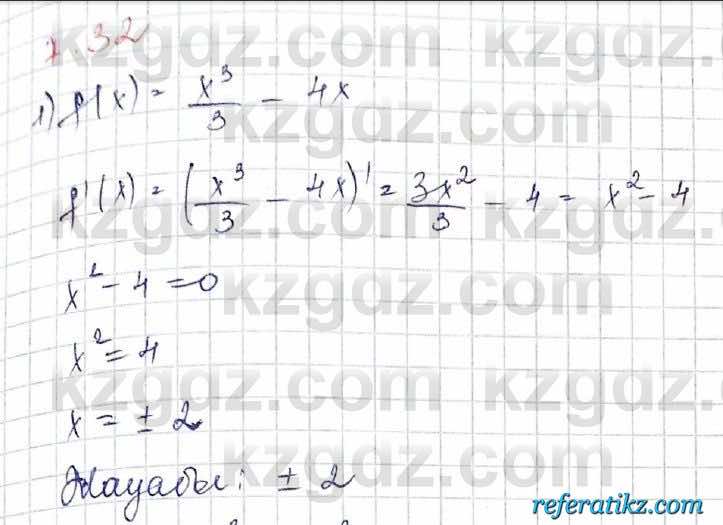 1.32
1) f(x) = x³/3 - 4x
f'(x) = (x³/3 - 4x)' = 3x²/3 - 4 = x² - 4
x² - 4 = 0
x² = 4
x = ± 2
Жауабы: ± 2
kzgdz.com kzgdz.com
kzgdz.com kzgdz.com
kzgdz.com kzgdz.com
kzgdz.com kzgdz.com
kzgdz.com kzgdz.com
kzgdz.com kzgdz.com
referatikz.com